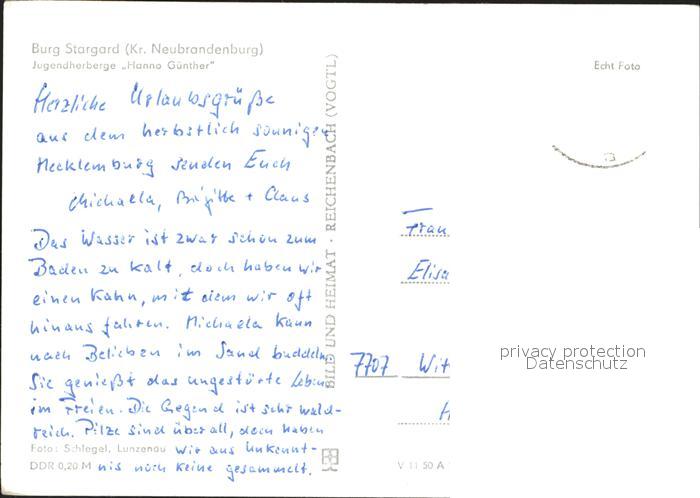 Burg Stargard (Kr. Neubrandenburg)
Jugendherberge „Hanno Günther"
Echt Foto
Herzliche Urlaubsgrüße
aus dem herbstlich sonnigen
Mecklemburg senden Euch
Michaela, Brigitte + Claus
Das Wasser ist zwar schon zum
Baden zu kalt, doch haben wir
einen Kahn, mit dem wir oft
hinaus fahren. Michaela kann
nach Belieben im Sand buddeln
Sie genießt das ungestörte Leben
im Freien. Die Gegend ist sehr wald-
reich. Pilze sind überall, doch haben
wir aus Unkennt-
nis noch keine gesammelt.
Foto: Schlegel, Lunzenau
DDR 0,20 M
BILD UND HEIMAT · REICHENBACH (VOGTL)
V 11 50 A
Frau
Elisa
7707 Witt
H
privacy protection
Datenschutz